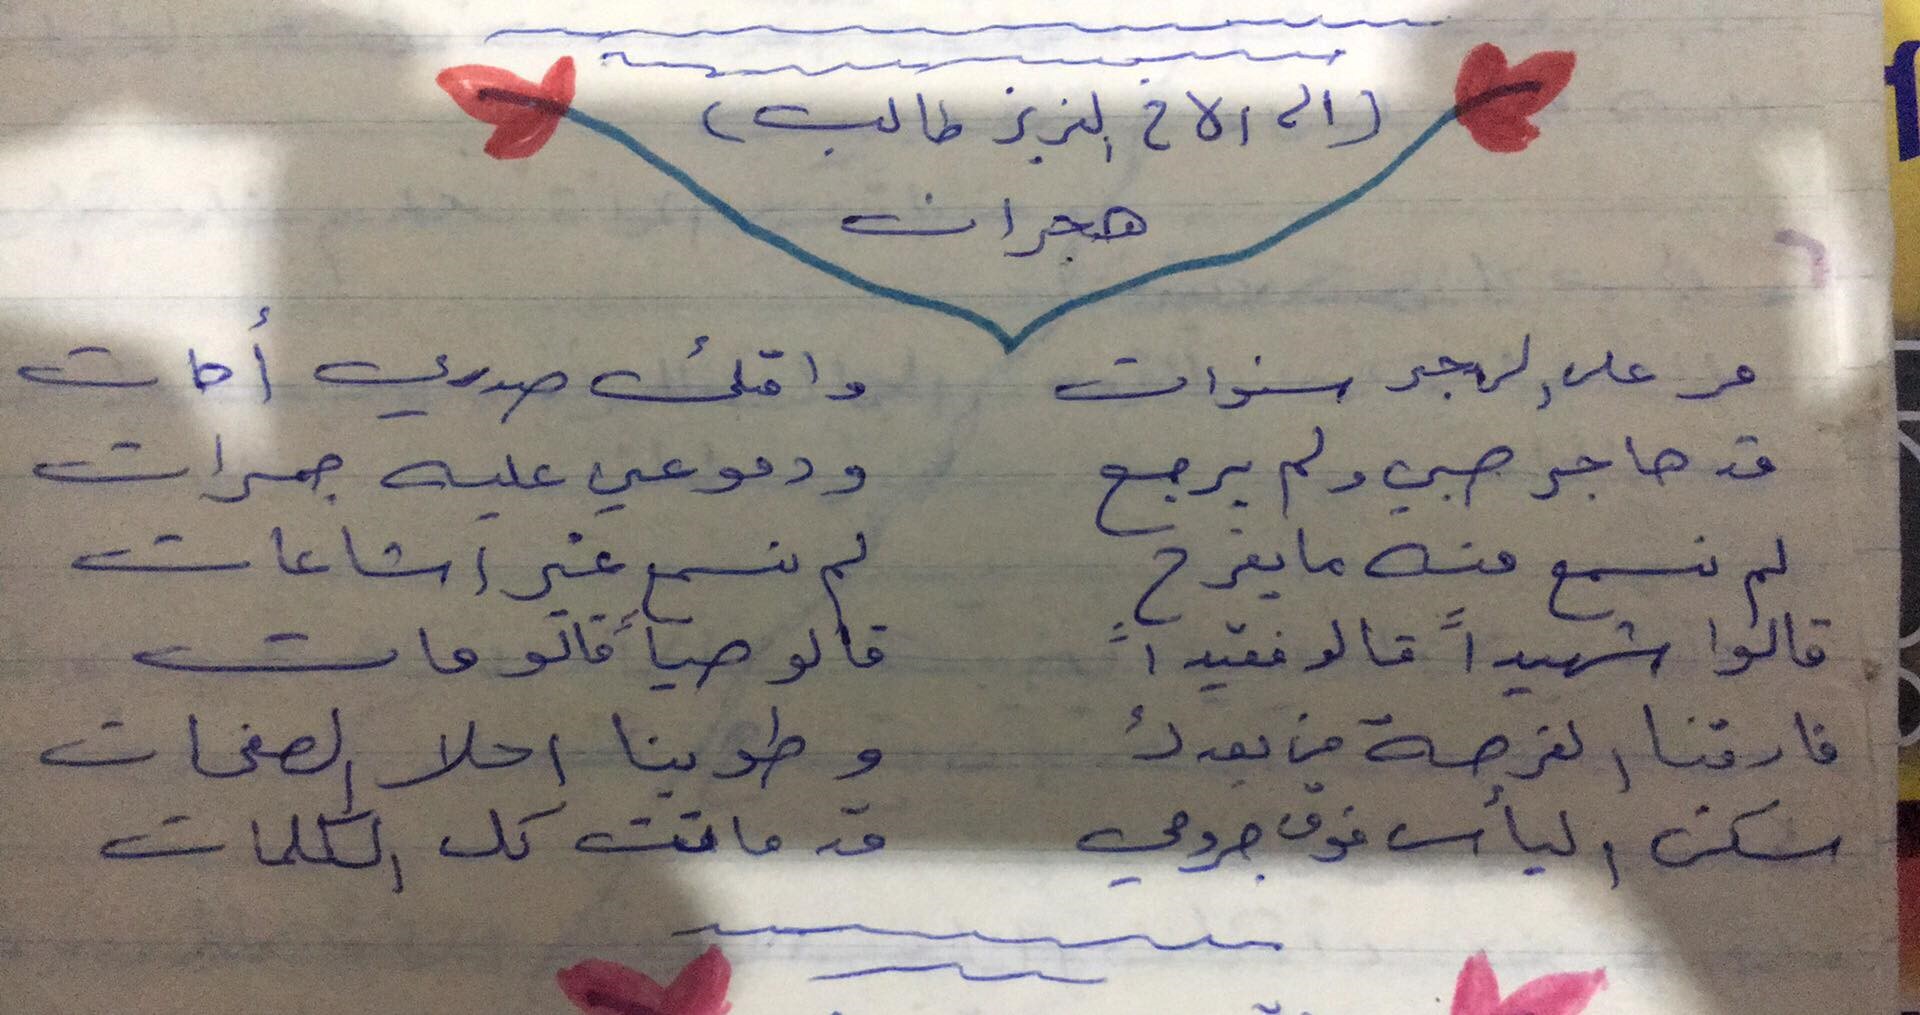 (الى الاخ العزيز طالب)
هجران
مر على الهجر سنوات وامتلئ صدري أهات
قد هاجر حبي ولم يرجع ودموعي عليه جمرات
لم نسمع منه ما يفرح لم نسمع غير اشاعات
قالوا شهيداً قالو فقيداً قالو حياً قالو مات
فارقنا الفرحة من بعدك وطوينا احلا الصفحات
سكن اليأس فوق جروحي قد ماتت كل الكلمات